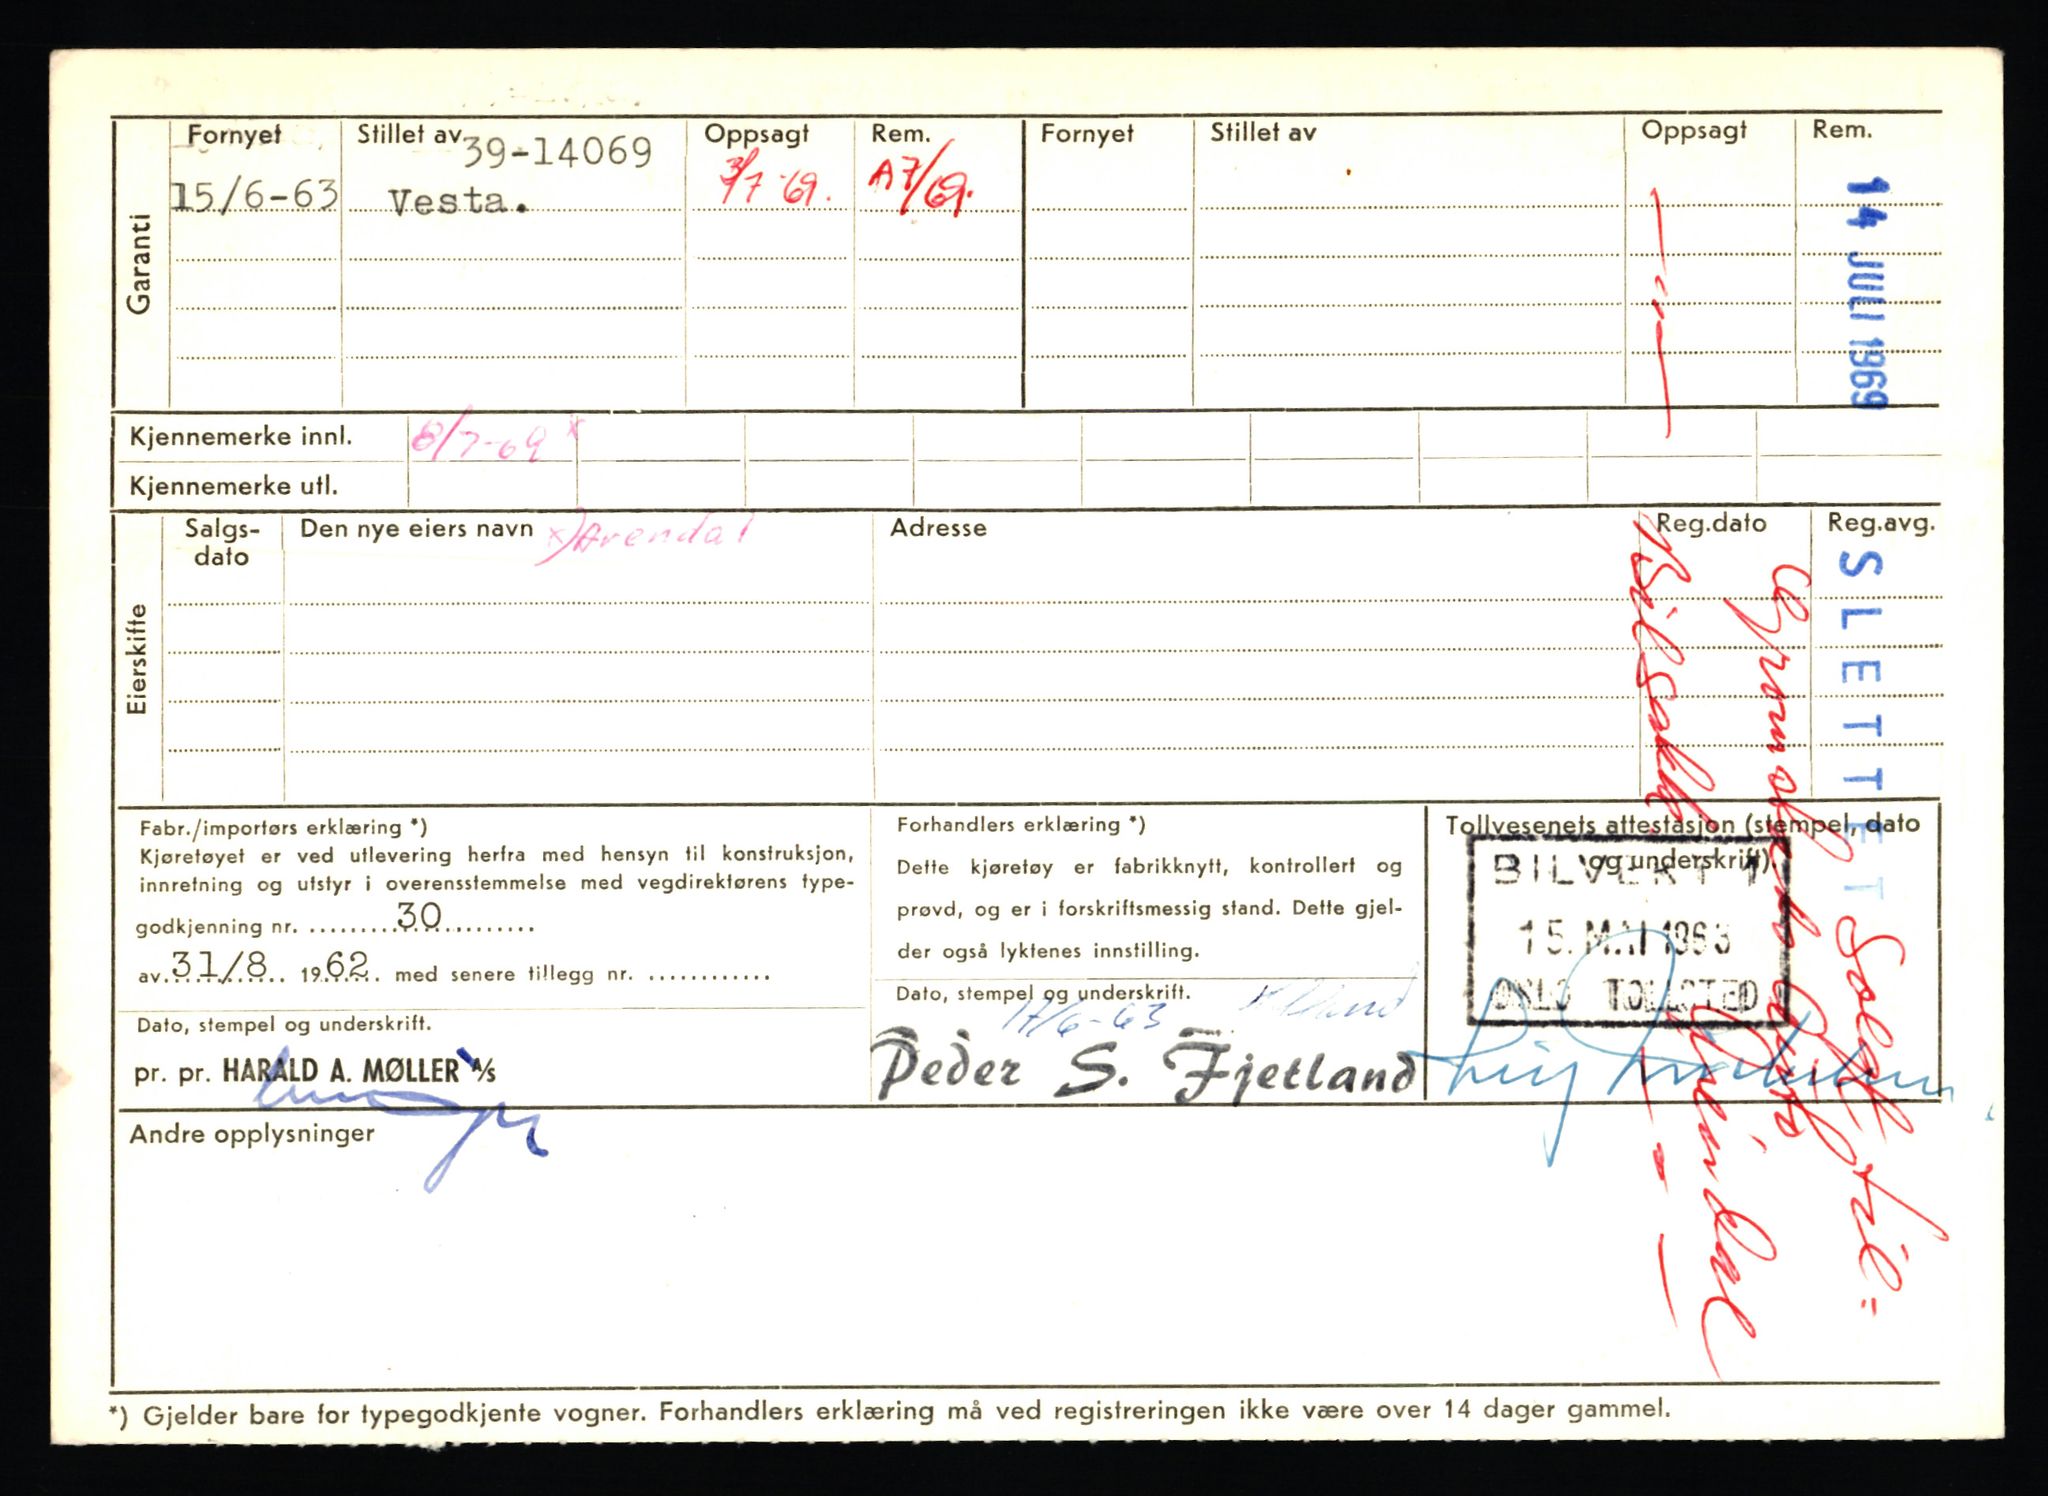 Garanti
Fornyet Stillet av Oppsagt Rem. Fornyet Stillet av Oppsagt Rem.
39-14069
15/6-63 Vesta. 3/7-69. A7/69.
14 JULI 1969
Kjennemerke innl. 8/7-69 x
Kjennemerke utl.
Eierskifte
Salgs-
dato
Den nye eiers navn x) Arendal Adresse Reg.dato Reg.avg.
SLETTET
Solgt til:
Bilsakk.
Arendal
Fabr./importørs erklæring *)
Kjøretøyet er ved utlevering herfra med hensyn til konstruksjon,
innretning og utstyr i overensstemmelse med vegdirektørens type-
godkjenning nr. 30
av 31/8 1962 med senere tillegg nr. ............
Dato, stempel og underskrift.
pr. pr. HARALD A. MØLLER A/S
Forhandlers erklæring *)
Dette kjøretøy er fabrikknytt, kontrollert og
prøvd, og er i forskriftsmessig stand. Dette gjel-
der også lyktenes innstilling.
Dato, stempel og underskrift.
17/6-63
Peder S. Fjetland
Tollvesenets attestasjon (stempel, dato
og underskrift).
15. MAI 1963
OSLO TOLLSTED
Andre opplysninger
*) Gjelder bare for typegodkjente vogner. Forhandlers erklæring må ved registreringen ikke være over 14 dager gammel.